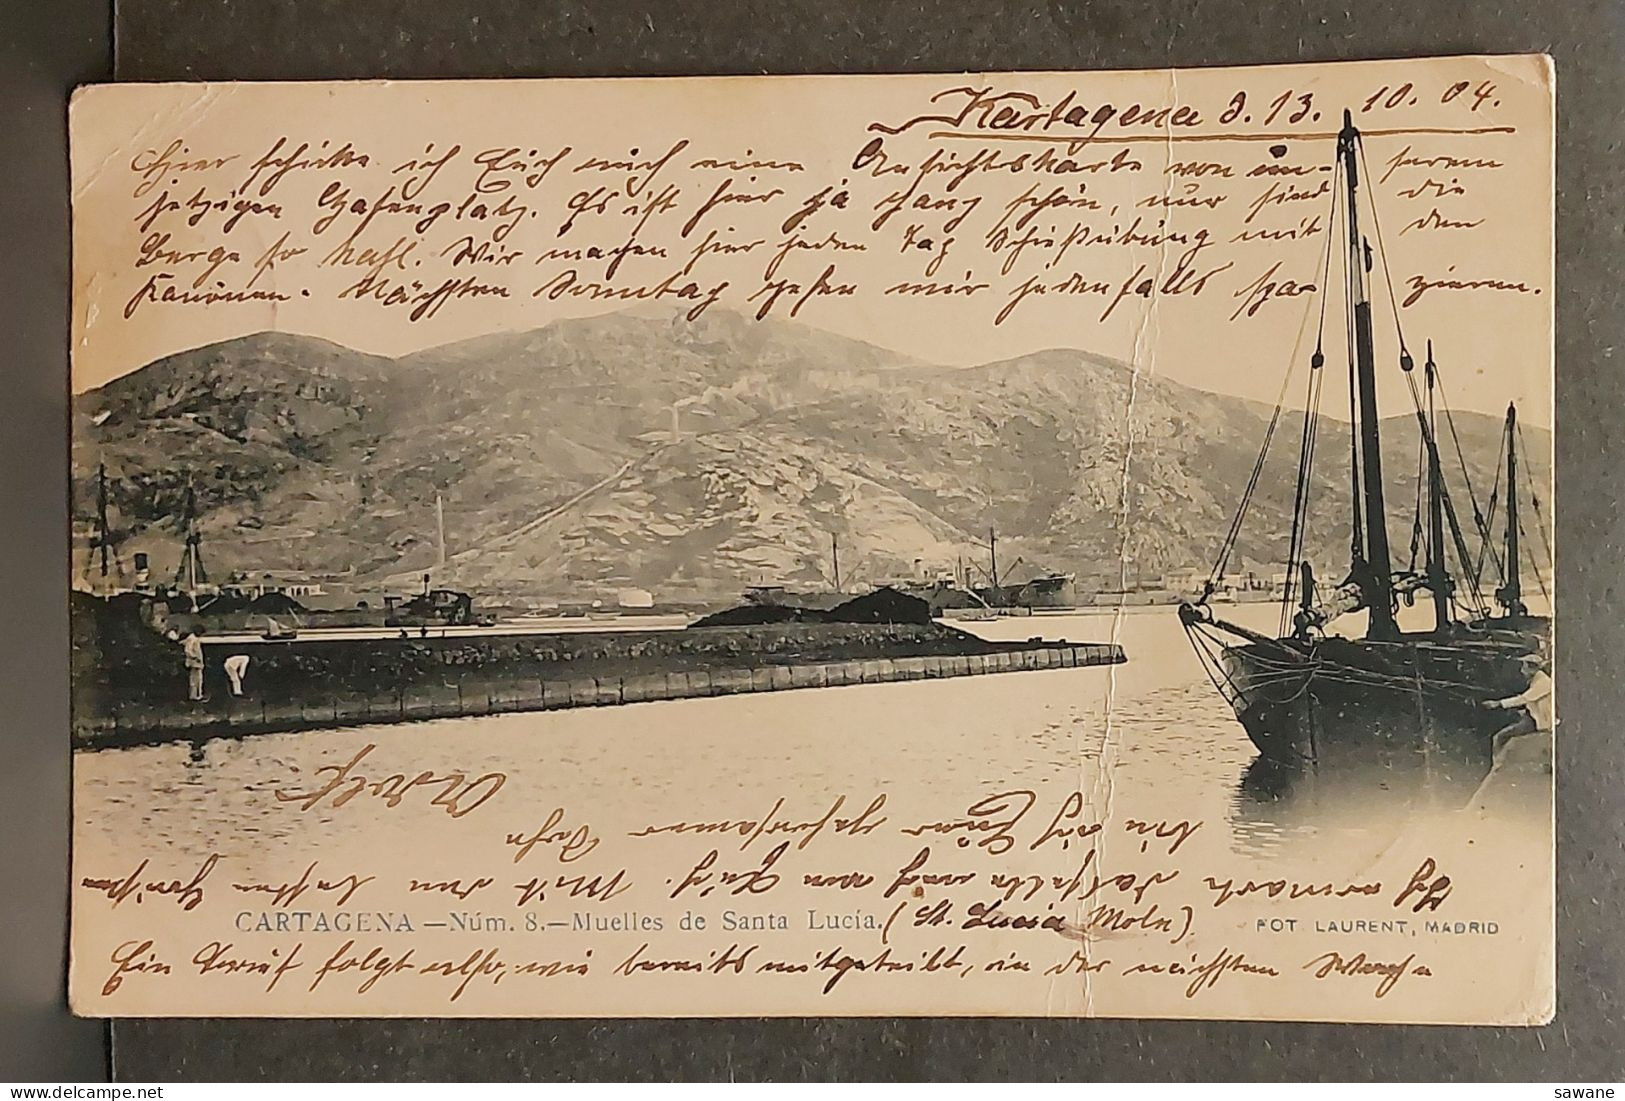 Kartagena d. 13. 10. 04.
Hier schicke ich Euch auch eine Ansichtskarte von un- serem
jetzigen Hafenplatz. Es ist hier ja ganz schön, nur sind die
Berge so kahl. Wir machen hier jeden Tag Schießübung mit den
Kanonen. Nächsten Sonntag gehen wir jedenfalls spa- zieren.
CARTAGENA —Núm. 8.— Muelles de Santa Lucía. (St. Lucia Mole)
FOT. LAURENT, MADRID
Ein Brief folgt also, wie bereits mitgeteilt, in der nächsten Woche
Ich erwarte dasselbe auch von Euch. Mit den besten Grüßen
bin ich Euer gehorsamer Sohn
Adolf
sawane